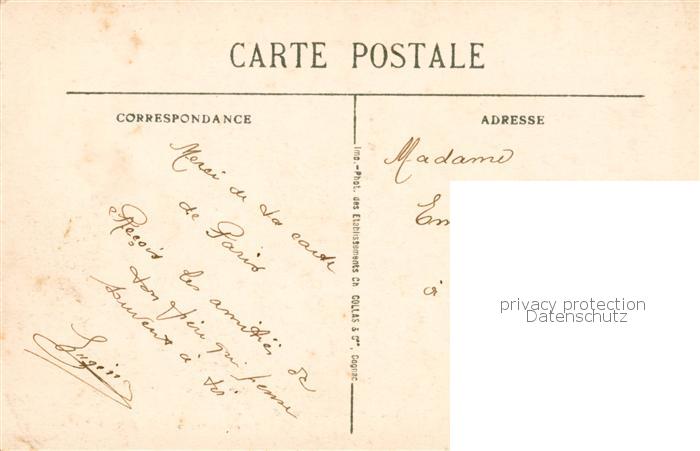 CARTE POSTALE
CORRESPONDANCE
ADRESSE
Merci de ta carte
de Paris
Reçois les amitiés de
ton père qui pense
souvent à toi
Madame
Em
à
Imp.-Phot. des Etablissements Ch. COLLAS & Cie, Cognac
privacy protection
Datenschutz